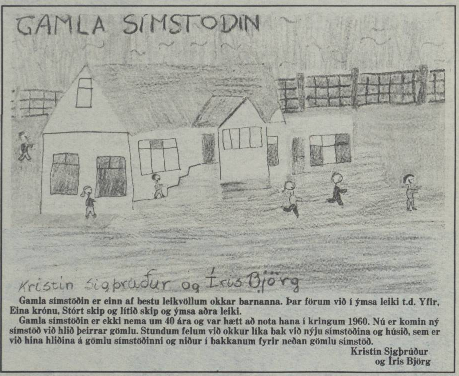 GAMLA SÍMSTÖÐIN
Kristín Sigþrúður og Íris Björg
Gamla símstöðin er einn af bestu leikvöllum okkar barnanna. Þar förum við í ýmsa leiki t.d. Yfir,
Eina krónu, Stórt skip og lítið skip og ýmsa aðra leiki.
Gamla símstöðin er ekki nema um 40 ára og var hætt að nota hana í kringum 1960. Nú er komin ný
símstöð við hlið þeirrar gömlu. Stundum felum við okkur líka bak við nýju símstöðina og húsið, sem er
við hina hliðina á gömlu símstöðinni og niður í bakkanum fyrir neðan gömlu símstöð.
Kristín Sigþrúður
og Íris Björg